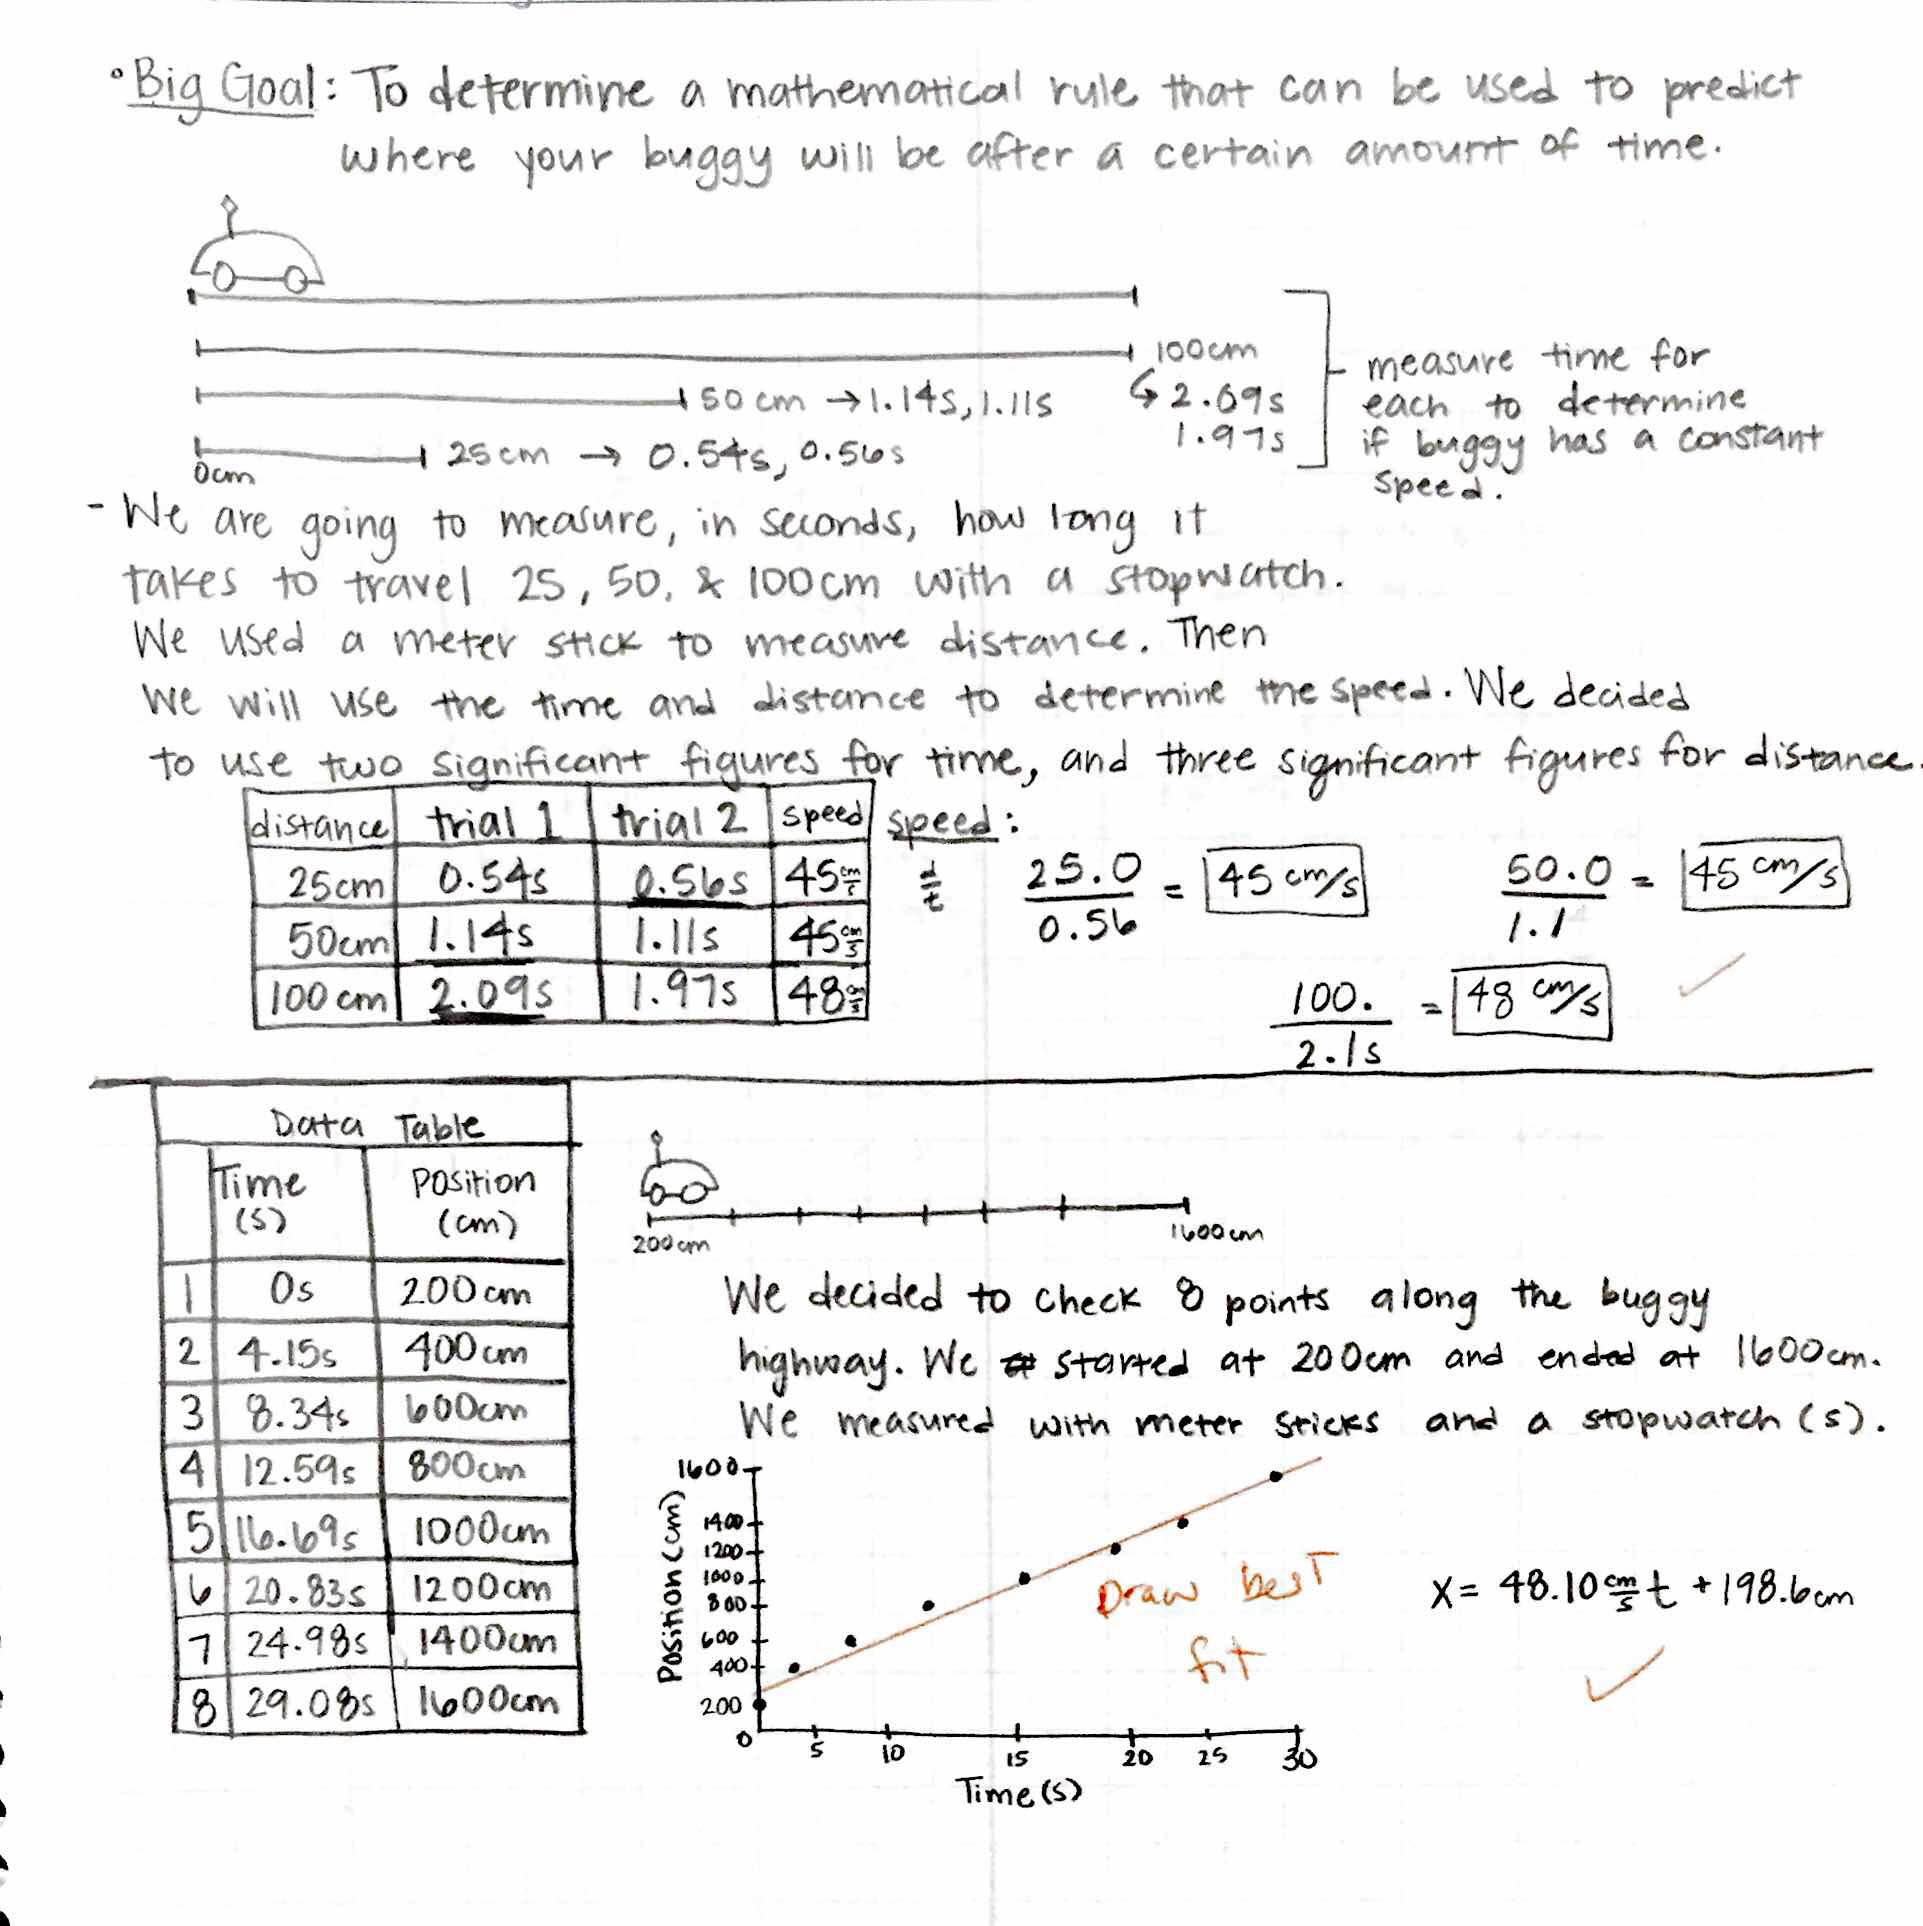 °Big Goal: To determine a mathematical rule that can be used to predict
where your buggy will be after a certain amount of time.
100cm
50cm →1.14s, 1.11s
↳ 2.09s
1.97s
25cm → 0.54s, 0.56s
0cm
measure time for
each to determine
if buggy has a constant
speed.
- We are going to measure, in seconds, how long it
takes to travel 25, 50, & 100cm with a stopwatch.
We used a meter stick to measure distance. Then
we will use the time and distance to determine the speed. We decided
to use two significant figures for time, and three significant figures for distance.
distance trial 1 trial 2 speed
25cm 0.54s 0.56s 45 cm/s
50cm 1.14s 1.11s 45 cm/s
100cm 2.09s 1.97s 48 cm/s
speed:
d/t
25.0/0.56 = 45 cm/s
50.0/1.1 = 45 cm/s
100./2.1s = 48 cm/s
Data Table
Time (s) Position (cm)
1 0s 200cm
2 4.15s 400cm
3 8.34s 600cm
4 12.59s 800cm
5 16.69s 1000cm
6 20.83s 1200cm
7 24.98s 1400cm
8 29.08s 1600cm
200cm 1600cm
We decided to check 8 points along the buggy
highway. We started at 200cm and ended at 1600cm.
We measured with meter sticks and a stopwatch (s).
Position (cm)
1600
1400
1200
1000
800
600
400
200
0 5 10 15 20 25 30
Time (s)
Draw best
fit
x = 48.10 cm/s t + 198.6cm